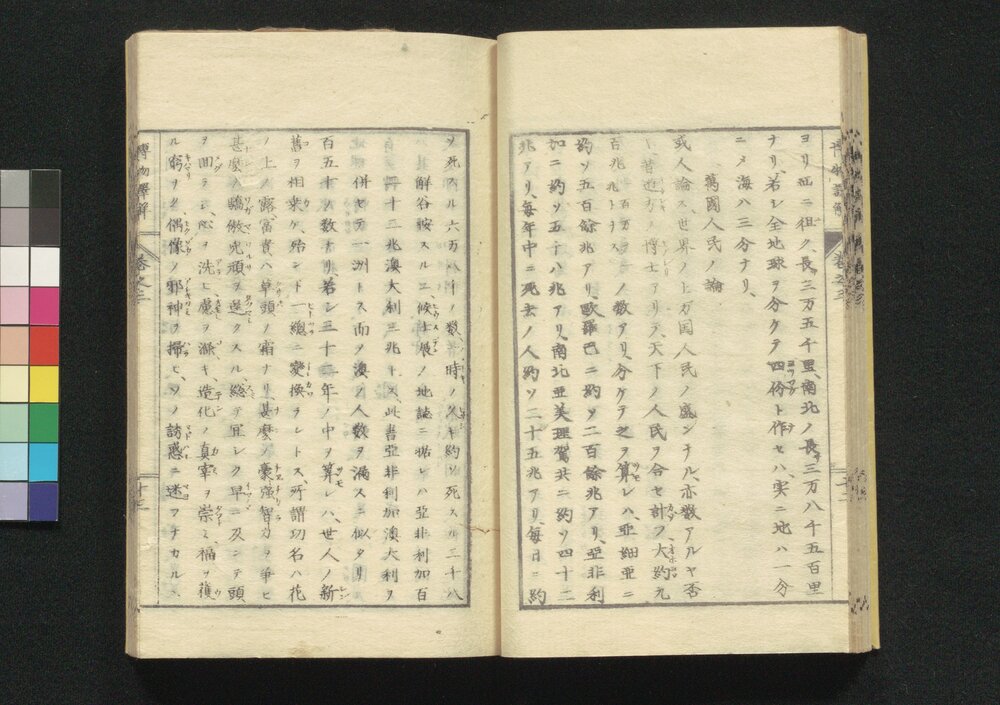 ヨリ延ニ徂ク、長サ三万五千里、南北ノ長サ三万八千五百里
ナリ、若シ全地球ヲ分ケテ四份ト作セハ、実ニ地ハ一分
ニメ海ハ三分ナリ、
萬國人民ノ論
或人論ス世界ノ上万国人民ノ盛ンナル、亦数アルヤ否
昔西方ノ博士アリテ、天下ノ人民ヲ合セ計フ大約九
百兆ノ数アリ、分ケテ之ヲ算レハ、亜細亜ニ
約ソ五百餘兆アリ、歐羅巴ニ約ソ二百餘兆アリ、亜非利
加ニ約ソ五十八兆アリ、南北亜美理駕共ニ約ソ四十二
兆アリ、毎年中ニ死去ノ人約ソ二十五兆アリ、毎日ニ約
ソ死スル六万八千ノ数、時ノ久キ約ソ死スル二千八
解谷按スルニ候士展ノ地誌ニ据レハ亜非利加百
十二兆澳大利三兆トス、此書亜非利加澳大利ヲ
併セテ一洲トス而ヲ澳ノ人数ヲ漏スニ似タリ
百五十ノ数ナリ、若シ三十二年ノ中ヲ算レハ、世人ノ新
舊ヲ相来ケ殆ント一總ニ變換ヲレトス、所謂功名ハ花
ノ上ノ露、富貴ハ草頭ノ霜ナリ、甚麽ノ豪强智力ヲ争ヒ
甚麽ノ驕傲兇頑ヲ逞クスル総テ宜シク早ニ及ンテ頭
ヲ回ラシ、心ヲ洗ヒ慮ヲ滌キ、造化ノ真宰ヲ崇ミ、福ヲ獲
ル窮リナク、偶像ノ邪神ヲ掃ヒ、ソノ誘惑ニ迷フナカルヘ
博物譯解
巻之二